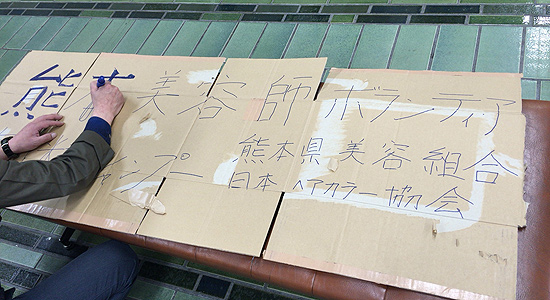 熊本美容師ボランティア
シャンプー 熊本県美容組合
日本ヘアカラー協会